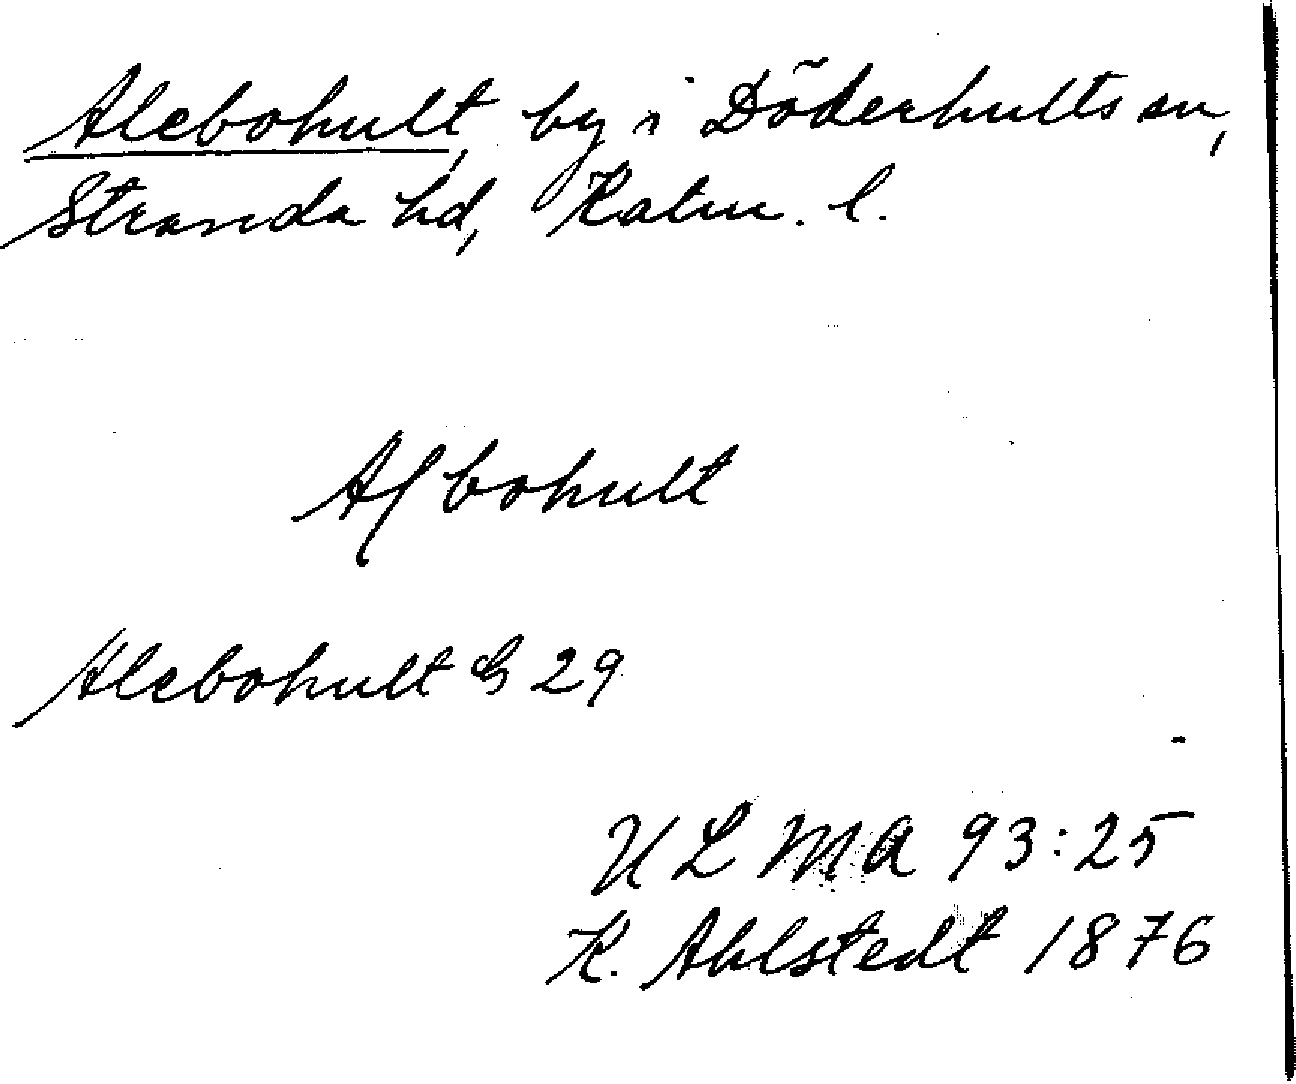 Alebohult, by i Döderhults sn,
Stranda hd, Kalm. l.
Aſbohult
Alebohult 29
ULMA 93:25
K. Ahlstedt 1876